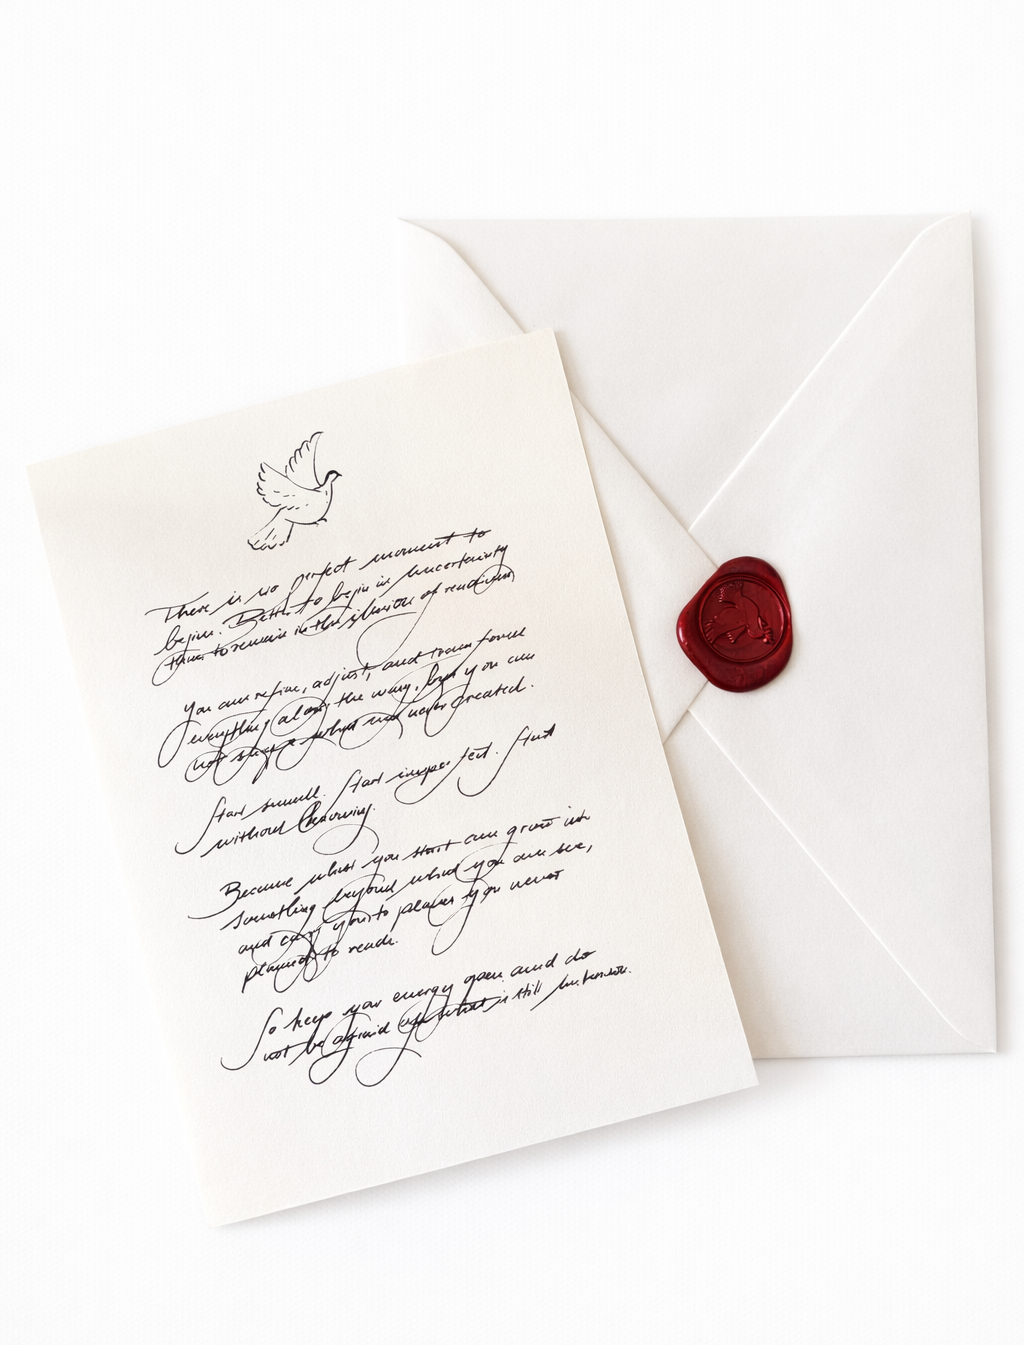 There is no perfect moment to
begin. Better to begin in uncertainty
than to remain in the illusion of readiness
you can refine, adjust, and transform
everything along the way, but you can
not shape what was never created.
Start small. Start imperfect. Start
without knowing.
Because what you start can grow into
something beyond what you can see,
and carry you to places you never
planned to reach.
So keep your energy open and do
not be afraid of what is still unknown.